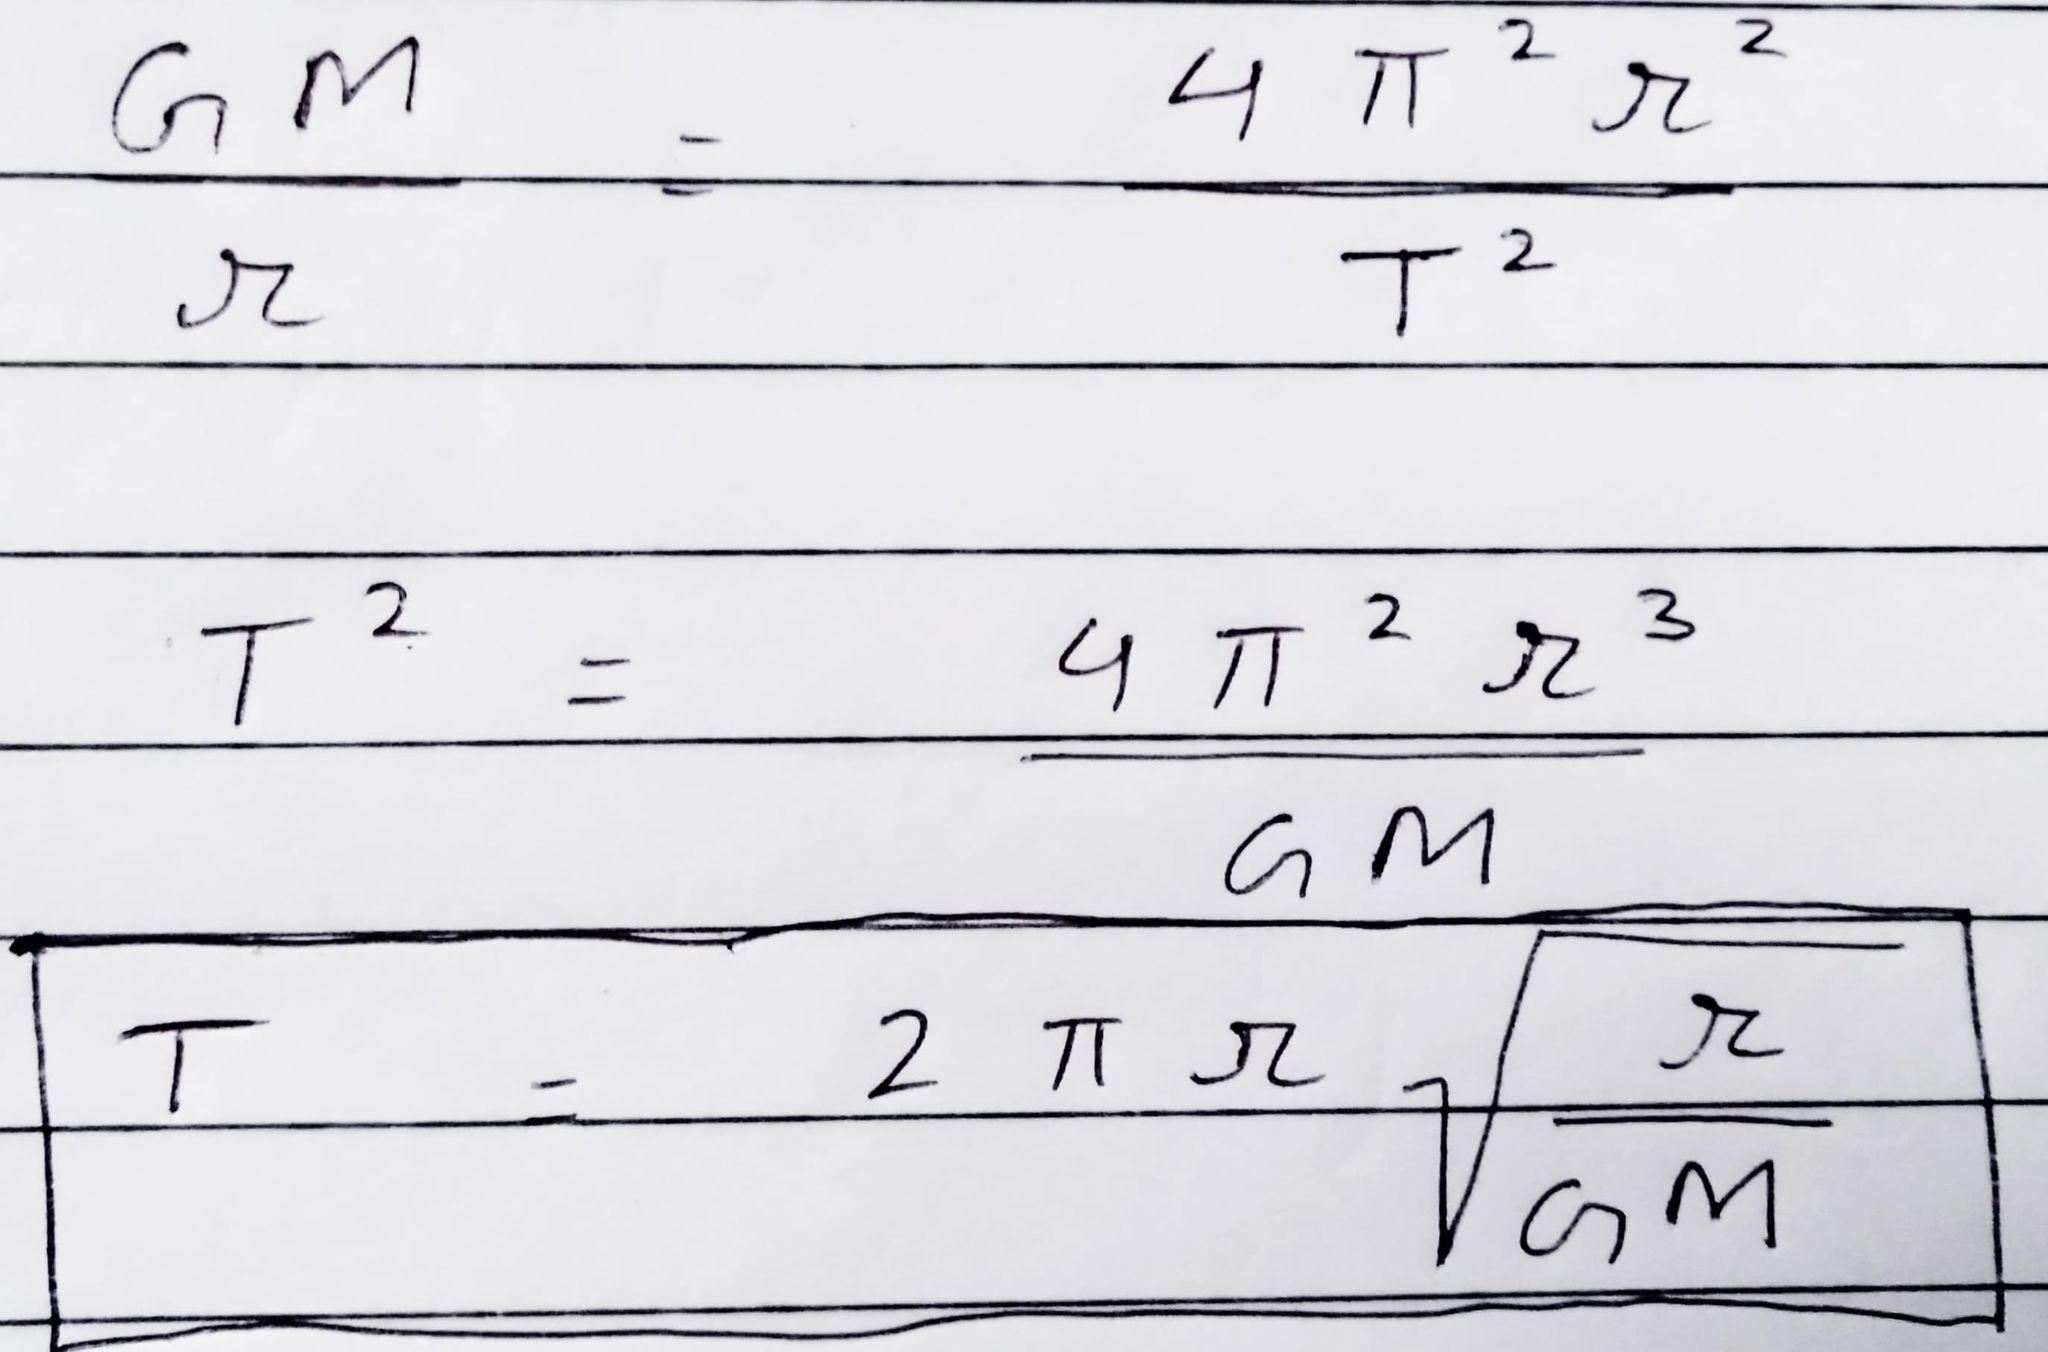 GM / r = 4 π² r² / T²
T² = 4 π² r³ / GM
T = 2 π r √(r / GM)